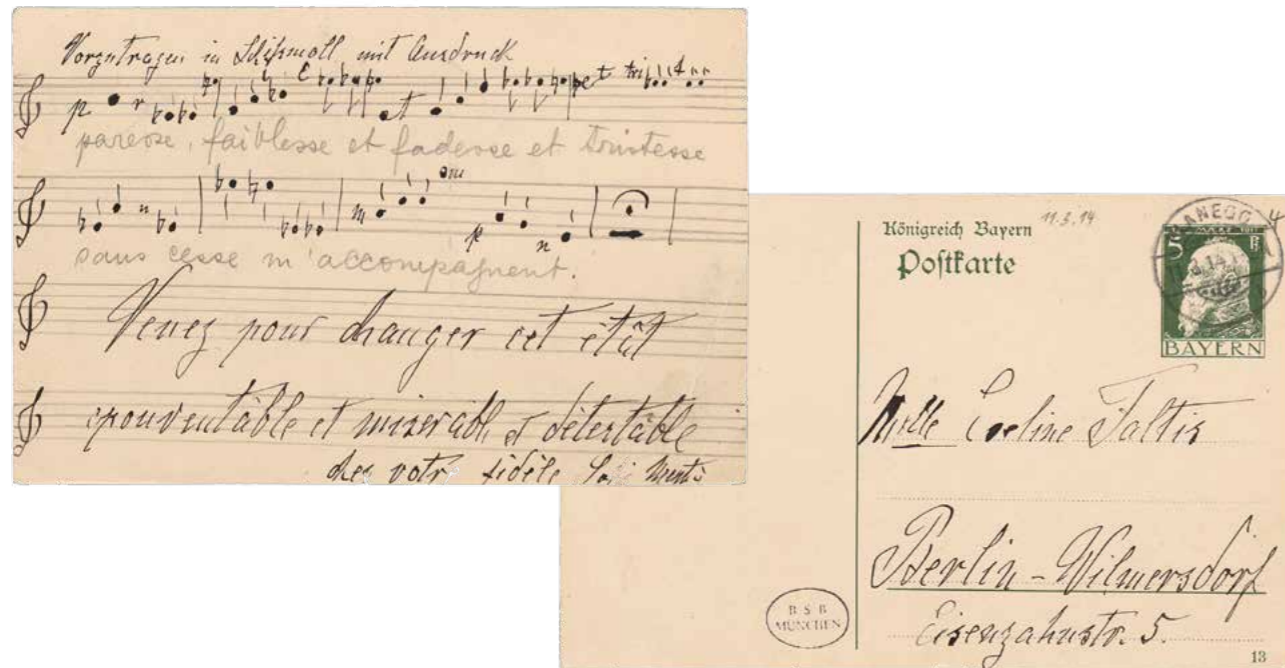 Vorzutragen in mit Ausdruck
paresse, faiblesse et fadesse et tristesse
sans cesse m'accompagnent.
Venez pour changer cet étât
epouventâble et miserâble et détestâble
chez votr fidèle
Königreich Bayern 11.3.14
Postkarte
5
BAYERN
Mlle Eveline Faltis
Berlin-Wilmersdorf
Eisenzahnstr. 5.
B S B
MÜNCHEN
13